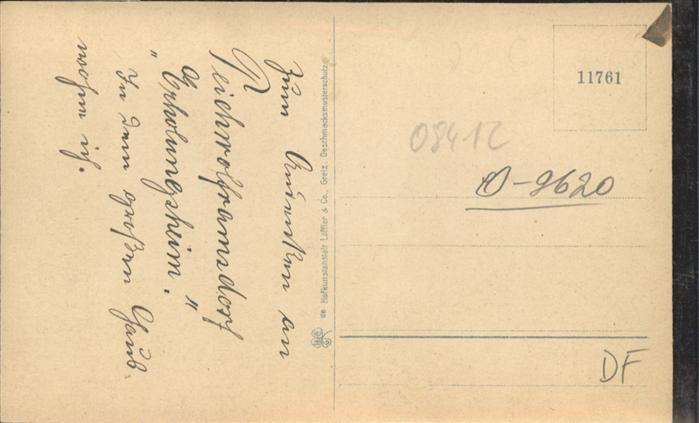 Zum Andenken an
Teichwolframsdorf
"Erholungsheim."
In dem großen Haus
wohn ich.
de Hofkunstanstalt Löffler & Co., Greiz. Geschmacksmusterschutz
11761
08412
O-9620
DF